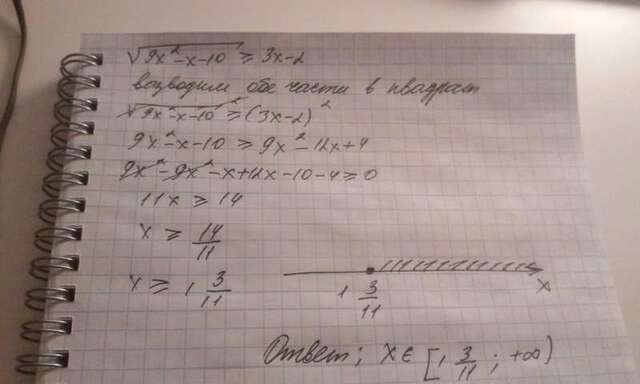 √9x²-x-10 ≥ 3x-2
возводим обе части в квадрат
√9x²-x-10² ≥ (3x-2)²
9x²-x-10 ≥ 9x²-12x+4
9x²-9x²-x+12x-10-4 ≥ 0
11x ≥ 14
x ≥ 14/11
x ≥ 1 3/11
1 3/11 x
Ответ; x ∈ [1 3/11 ; +∞)